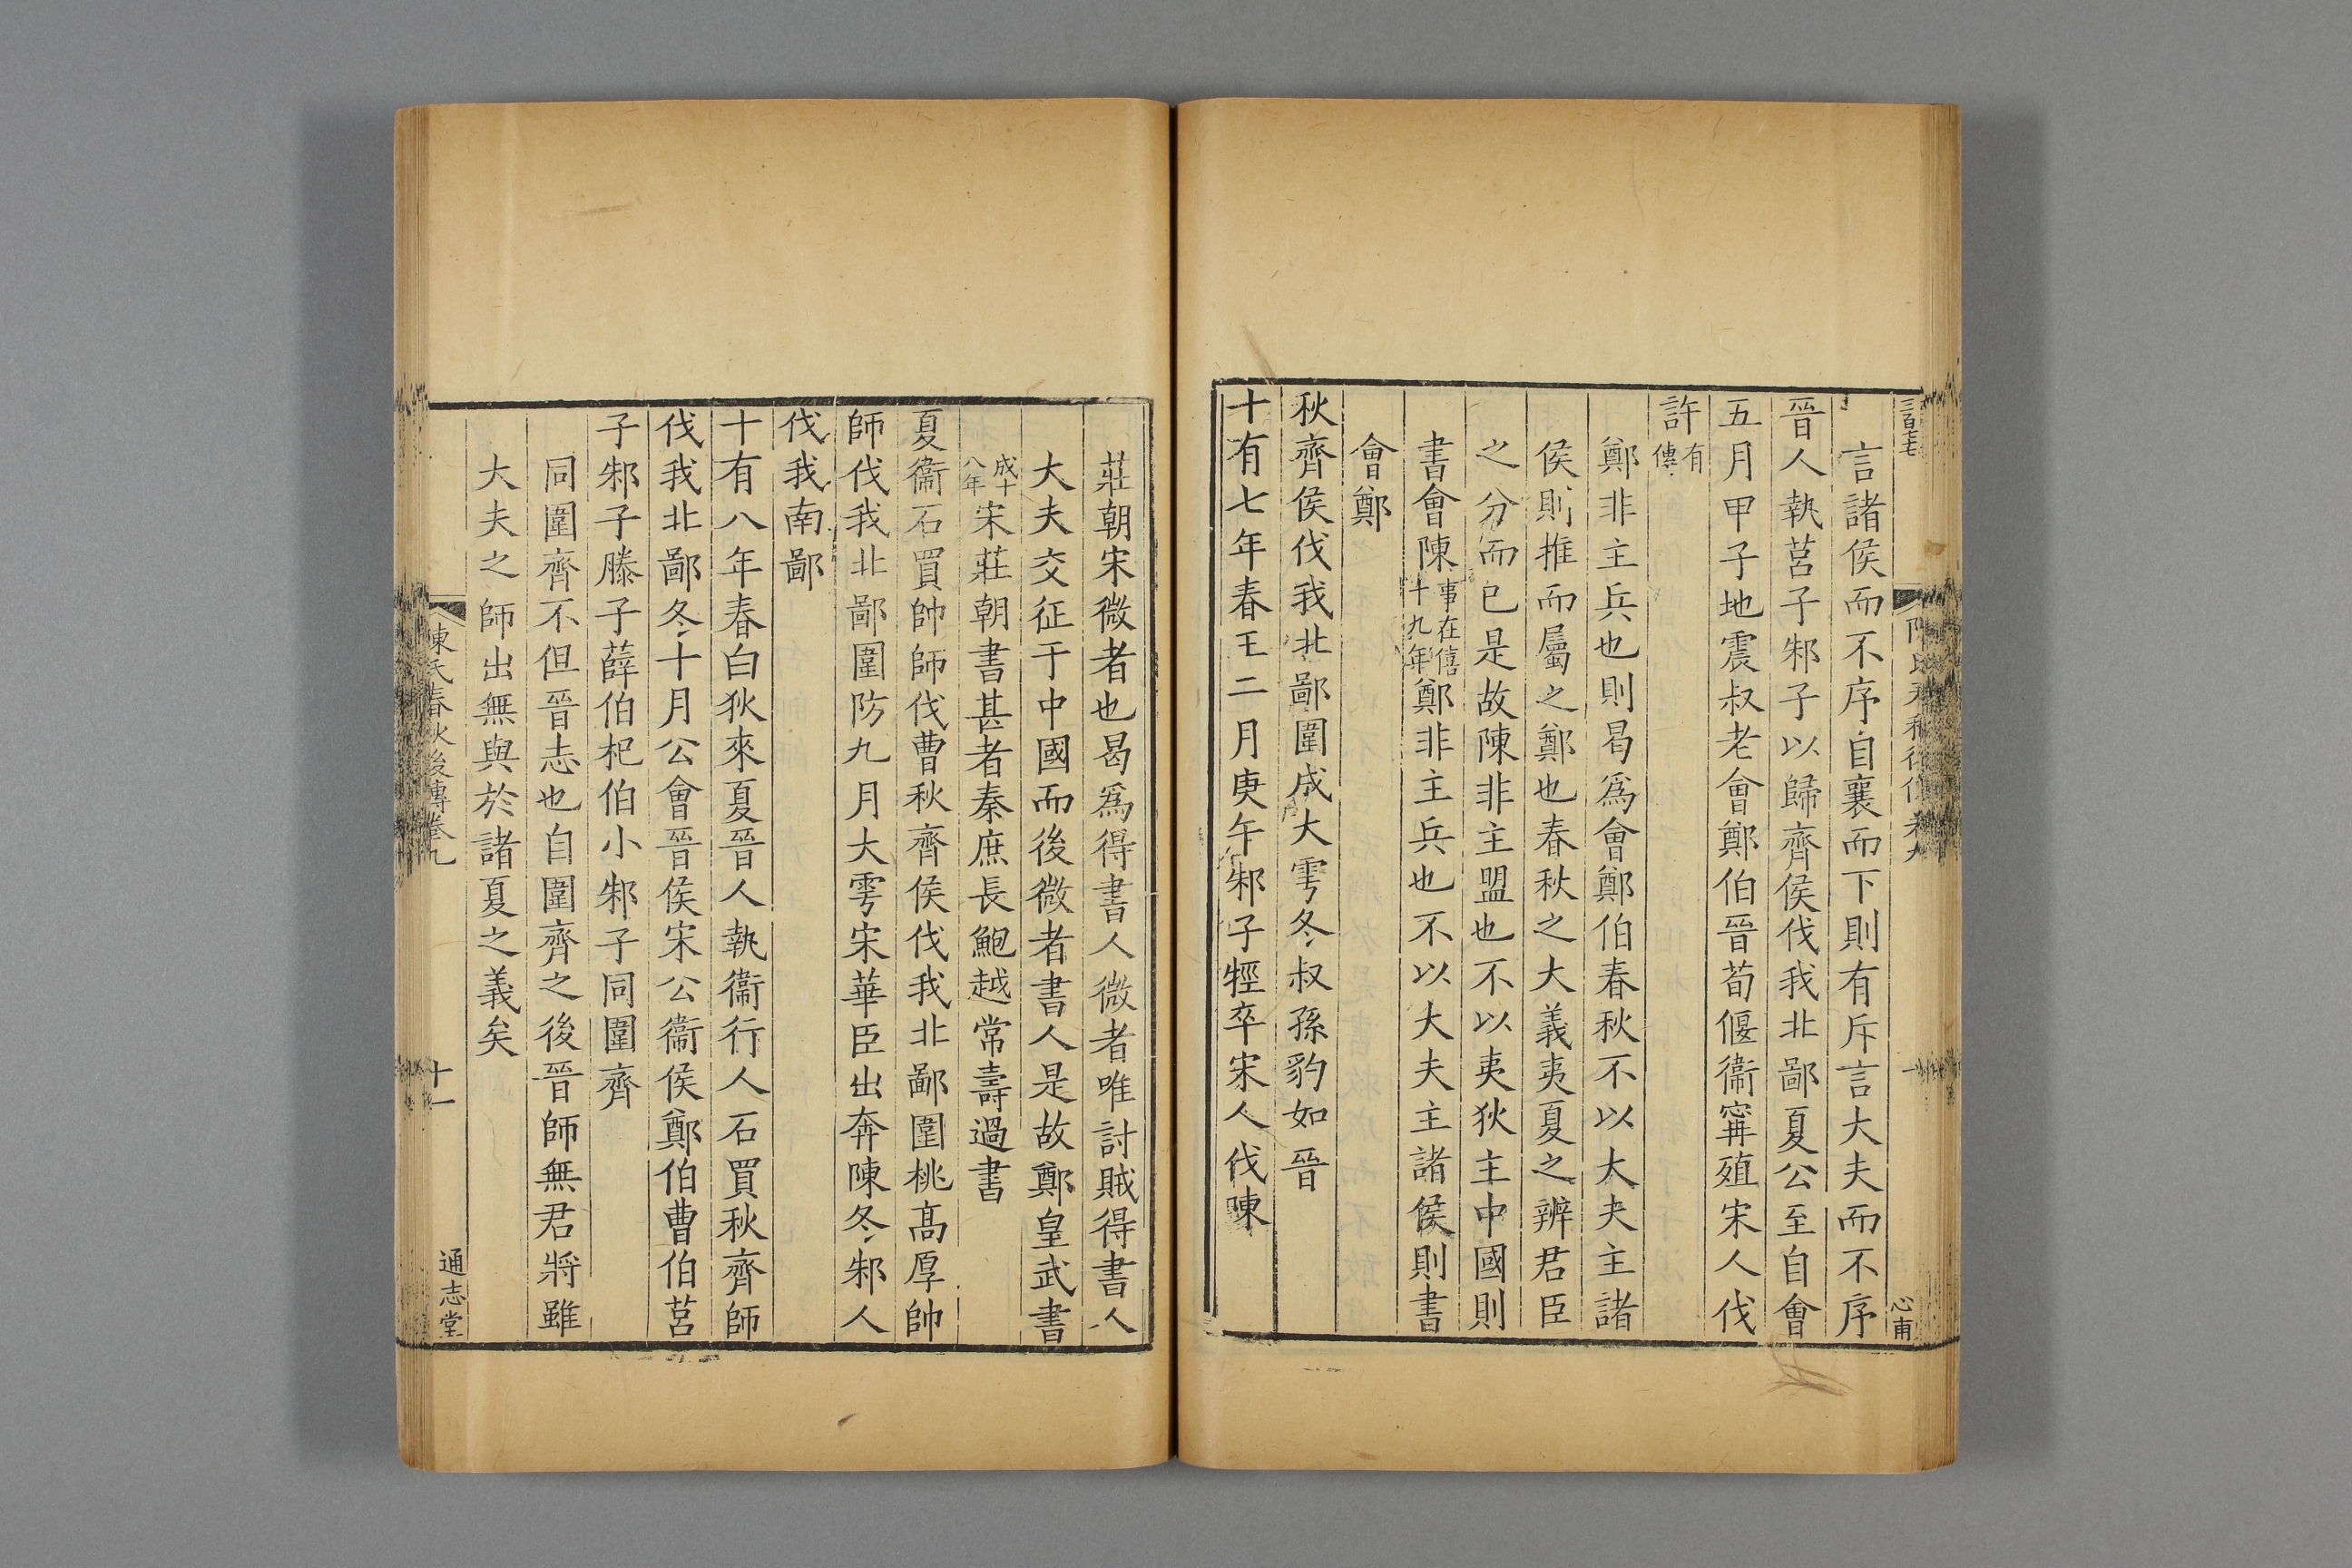 言諸侯而不序自襄而下則有斥言大夫而不序
晉人執莒子邾子以歸齊侯伐我北鄙夏公至自會
五月甲子地震叔老會鄭伯晉荀偃衞甯殖宋人伐
許有傳
鄭非主兵也則曷爲會鄭伯春秋不以大夫主諸
侯則推而屬之鄭也春秋之大義夷夏之辨君臣
之分而已是故陳非主盟也不以夷狄主中國則
書會陳事在僖十九年鄭非主兵也不以大夫主諸侯則書
會鄭
秋齊侯伐我北鄙圍成大雩冬叔孫豹如晉
十有七年春王二月庚午邾子牼卒宋人伐陳
莊朝宋微者也曷爲得書人微者唯討賊得書人
大夫交征于中國而後微者書人是故鄭皇武書
成十八年宋莊朝書甚者秦庶長鮑越常壽過書
夏衞石買帥師伐曹秋齊侯伐我北鄙圍桃高厚帥
師伐我北鄙圍防九月大雩宋華臣出奔陳冬邾人
伐我南鄙
十有八年春白狄來夏晉人執衞行人石買秋齊師
伐我北鄙冬十月公會晉侯宋公衞侯鄭伯曹伯莒
子邾子滕子薛伯杞伯小邾子同圍齊
同圍齊不但晉志也自圍齊之後晉師無君將雖
大夫之師出無與於諸夏之義矣
陳氏春秋後傳卷九
十一
通志堂
心甫